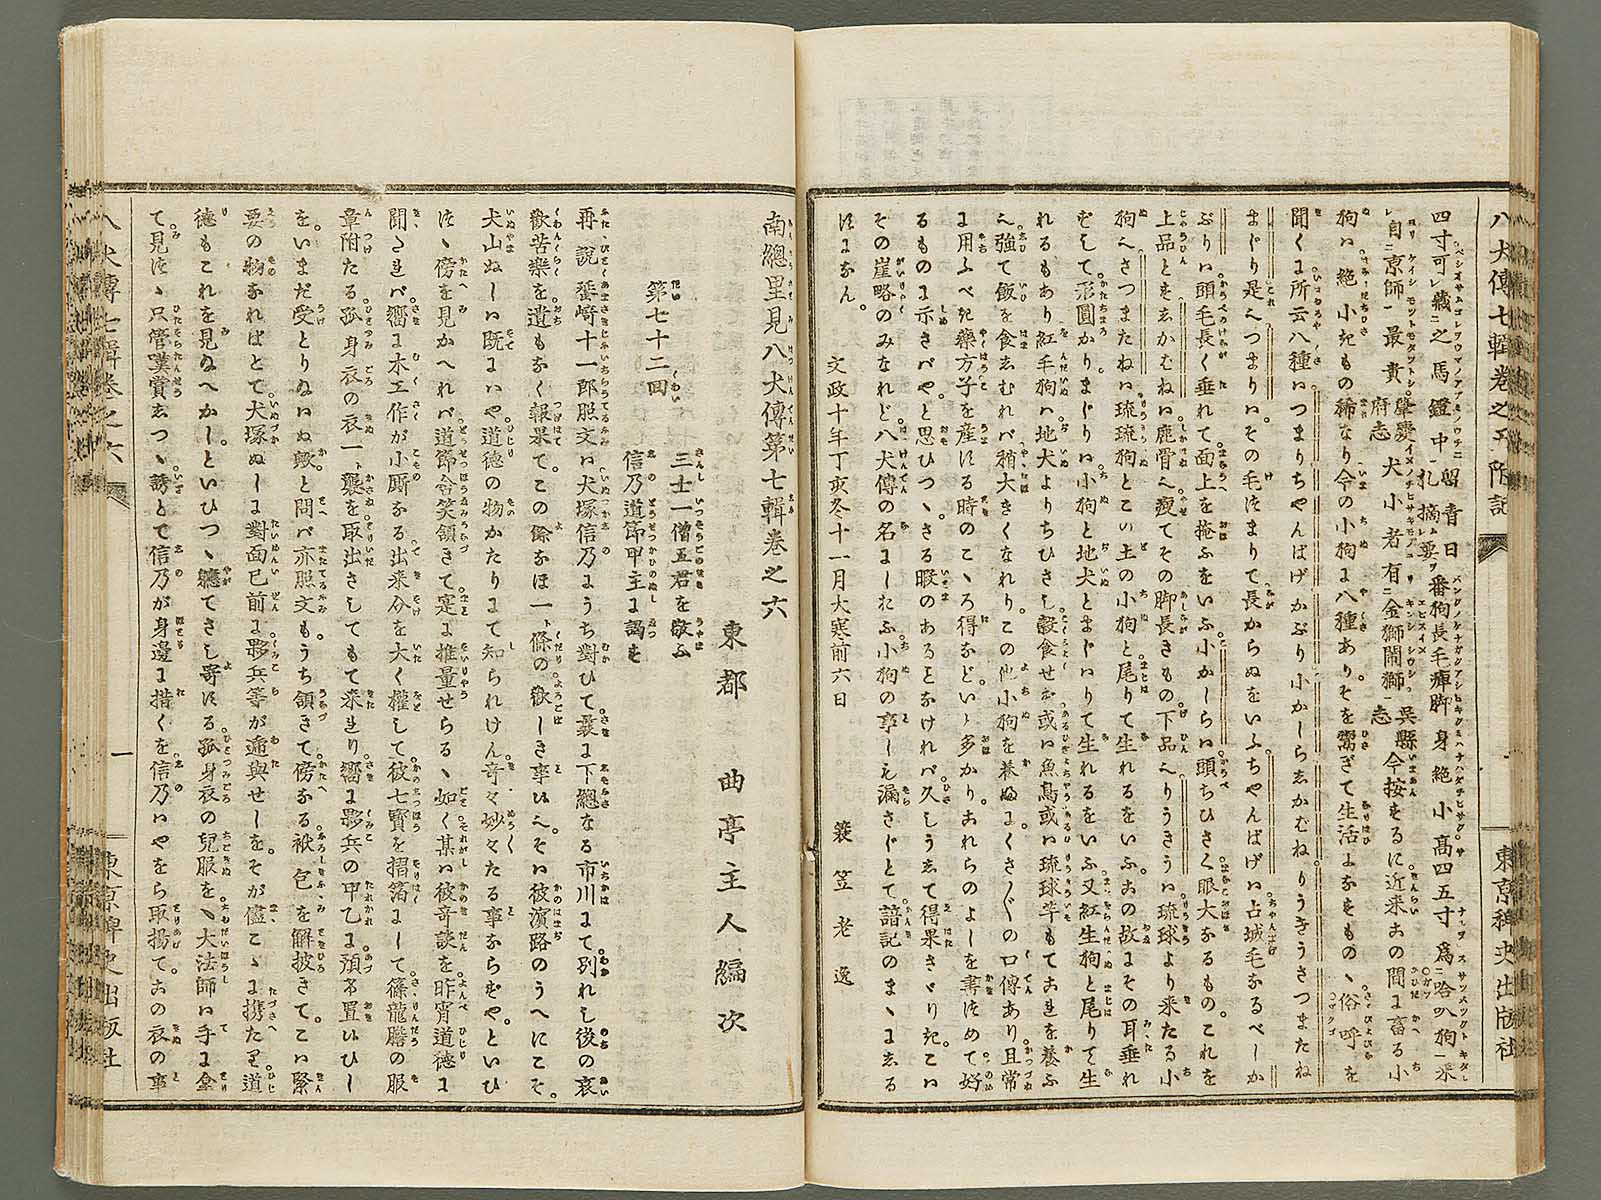 八犬傳七輯卷之五附記
東京稗史出版社
四寸可藏之馬鐙中留青日札摘要番狗長毛痺脚身絶小高四五寸爲哈叭狗一采
自京師最貴肇慶府志犬小者有金獅閙獅吳縣志今按るに近来この間に畜る小
狗ハ絶小きもの稀なり今の小狗に八種ありそを鬻ぎて生活になをもの、俗呼を
聞くに所云八種ハつまりちやんばげかぶり小かしらしかむねりうきうさつまたね
まじり是へつまりハその毛ほまりて長からぬをいふちやんばげハ占城毛なるべしか
ぶりハ頭毛長く垂れて面上を掩ふをいふ小かしらハ頭ちひさく眼大なるものこれを
上品とをしかむねハ鹿骨へ瘦てその脚長きもの下品へりうきうハ琉球より来たる小
狗へさつまたねハ琉琉狗とこの土の小狗と尾りて生れるをいふこの故にその耳垂れ
ぞして形圓かりまじりハ小狗と地犬とまじハりて生れるをいふ又紅生狗と尾りて生
れるもあり紅毛狗ハ地犬よりちひさし穀食せを或ハ魚鳥或ハ琉球芋もてこれを養ふ
へ強て飯を食しむれバ稍大きくなれりこの他小狗を養ぬにくさ〴〵の口傳あり且常
に用ふべき藥方子を産ほる時のこゝろ得などいと多かりこれらのよしを書ほめて好
るものに示さバやと思ひつゝさる暇のあるとなけれバ久しうゑて得果さゞりきこハ
その崖略のみなれど八犬傳の名にしおふ小狗の事しも漏さじとて諳記のまゝにゑる
ほになん。
文政十年丁亥冬十一月大寒前六日　簑笠老逸
南總里見八犬傳第七輯卷之六
東都　曲亭主人編次
第七十二回
三士一僧五君を敬ふ
信乃道節甲主に謁を
再説蜑﨑十一郎照文ハ犬塚信乃にうち對ひて曩に下總なる市川にて別れし後の哀
歡苦樂を遺もなく報果て。この餘なほ一條の歡しき事ひへそハ彼濱路のうへにこそ。
犬山ぬしハ既にハや道德の物かたりにて知られけん。奇々妙々たる事ならずや。といひ
ほゝ傍を見かへれバ道節含笑領きて寔に推量せらるゝ如く某ハ彼奇談を昨宵道德に
聞たれバ嚮に木工作が小厮なる出来介を大く權して彼七寳を摺箔にして篠龍膽の服
章附たる。孤身衣の衣一襲を取出さしてもて来れり。嚮に夥兵の甲乙に預け置ひひし
を。いまだ受とりねハぬ歟。と問バ亦照文もうち領きて。傍なる袱包を解披きて。こハ緊
要の物なればとて。犬塚ぬしに對面已前に夥兵等が逓與せしを。そが儘こゝに携たり。道
德もこれを見ねへかし。といひつゝ軈てさし寄ほる孤身衣の兒服をゝ大法師ハ手に拿
て。見ほゝ只管嘆賞しつゝ誘とて信乃が身邊に措くを。信乃ハやをら取揚て。この衣の事
八犬傳七輯卷之六
一
東京稗史出版社